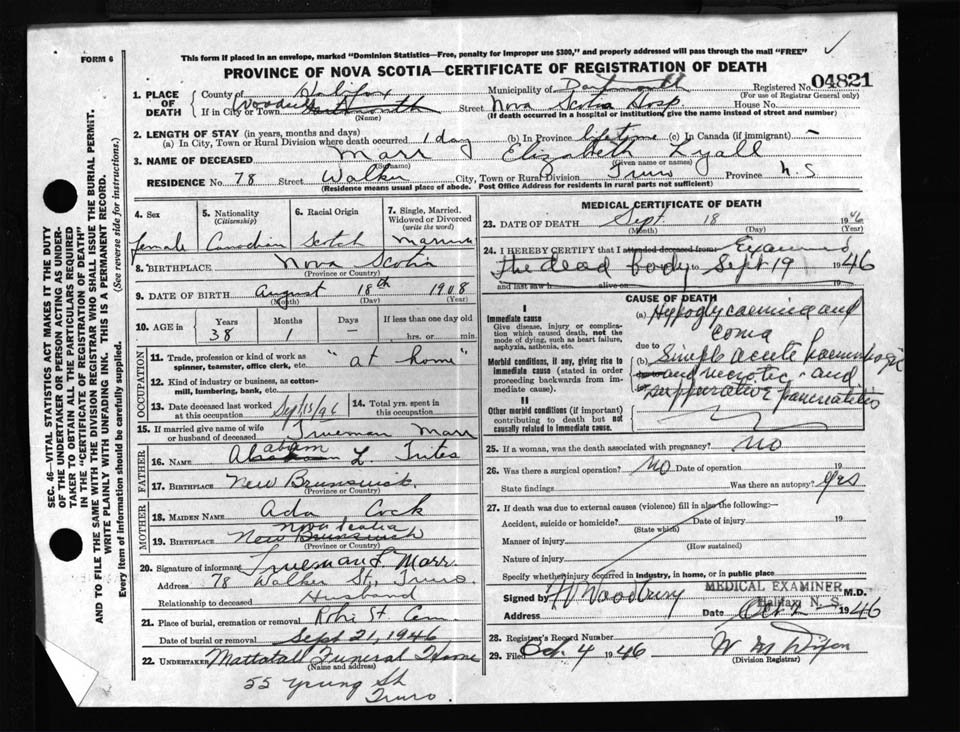 FORM 6
This form if placed in an envelope, marked "Dominion Statistics—Free, penalty for improper use $300," and properly addressed will pass through the mail "FREE"
PROVINCE OF NOVA SCOTIA—CERTIFICATE OF REGISTRATION OF DEATH
04821
SEC. 46—VITAL STATISTICS ACT MAKES IT THE DUTY
OF THE UNDERTAKER OR PERSON ACTING AS UNDER-
TAKER TO OBTAIN ALL THE PARTICULARS REQUIRED
IN THE "CERTIFICATE OF REGISTRATION OF DEATH"
AND TO FILE THE SAME WITH THE DIVISION REGISTRAR WHO SHALL ISSUE THE BURIAL PERMIT.
WRITE PLAINLY WITH UNFADING INK. THIS IS A PERMANENT RECORD.
Every item of information should be carefully supplied. (See reverse side for instructions.)
1. PLACE OF DEATH
County of Halifax Municipality of Dartmouth Registered No.
(For use of Registrar General only)
If in City or Town Woodside Dartmouth Street Nova Scotia Hosp House No.
(Name) (If death occurred in a hospital or institution, give the name instead of street and number)
2. LENGTH OF STAY (in years, months and days)
(a) In City, Town or Rural Division where death occurred 1 day (b) In Province lifetime (c) In Canada (if immigrant) -
3. NAME OF DECEASED Marr Elizabeth Lyall
(Surname) (Given name or names)
RESIDENCE No. 78 Street Walker City, Town or Rural Division Truro Province N.S
(Residence means usual place of abode. Post Office Address for residents in rural parts not sufficient)
4. Sex
female
5. Nationality
(Citizenship)
Canadian
6. Racial Origin
Scotch
7. Single, Married, Widowed or Divorced
(write the word)
Married
8. BIRTHPLACE Nova Scotia
(Province or Country)
9. DATE OF BIRTH August 18th 1908
(Month) (Day) (Year)
10. AGE in Years Months Days If less than one day old
38 1 — hrs. or min.
OCCUPATION
11. Trade, profession or kind of work as
spinner, teamster, office clerk, etc. "at home"
12. Kind of industry or business, as cotton-
mill, lumbering, bank, etc.
13. Date deceased last worked
at this occupation Sept 15/46
14. Total yrs. spent in
this occupation
15. If married give name of wife
or husband of deceased Trueman Marr
FATHER
16. NAME Abram L. Trites
17. BIRTHPLACE New Brunswick
(Province or Country)
MOTHER
18. MAIDEN NAME Ada Cock
Nova Scotia
19. BIRTHPLACE New Brunswick
(Province or Country)
20. Signature of informant Trueman L. Marr
Address 78 Walker St, Truro.
Relationship to deceased Husband
21. Place of burial, cremation or removal Robie St Cem
Date of burial or removal Sept 21, 1946
22. UNDERTAKER Mattatall Funeral Home
(Name and address)
55 Young St
Truro.
MEDICAL CERTIFICATE OF DEATH
23. DATE OF DEATH Sept. 18 1946
(Month) (Day) (Year)
24. I HEREBY CERTIFY that I attended deceased from Examined
the dead body to Sept 19 1946
and last saw h alive on
I
Immediate cause
Give disease, injury or complica-
tion which caused death, not the
mode of dying, such as heart failure,
asphyxia, asthenia, etc.
Morbid conditions, if any, giving rise to
immediate cause (stated in order
proceeding backwards from im-
mediate cause).
II
Other morbid conditions (if important)
contributing to death but not
causally related to immediate cause.
CAUSE OF DEATH
(a) Hypoglycaemia and
coma
due to
(b) Simple acute haemorrhagic
and necrotic - and
suppurative pancreatitis
25. If a woman, was the death associated with pregnancy? No
26. Was there a surgical operation? No Date of operation 19
State findings Was there an autopsy? Yes
27. If death was due to external causes (violence) fill in also the following:—
Accident, suicide or homicide? Date of injury 19
(State which)
Manner of injury
(How sustained)
Nature of injury
Specify whether injury occurred in industry, in home, or in public place
MEDICAL EXAMINER
Halifax N. S.
Signed by Woodbury M.D.
Address Date Oct 1946
28. Registrar's Record Number
29. Filed Oct. 4 1946 W M Dixon
(Division Registrar)